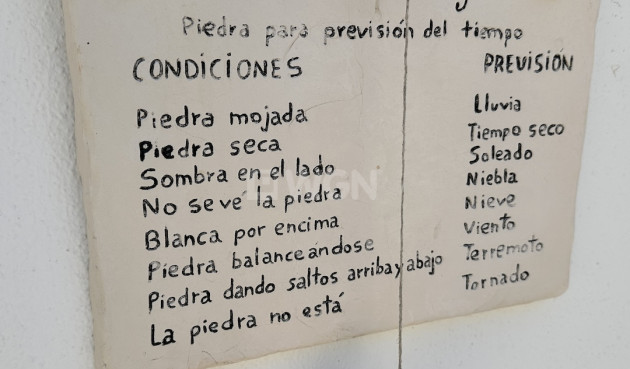 Piedra para previsión del tiempo
CONDICIONES PREVISIÓN
Piedra mojada Lluvia
Piedra seca Tiempo seco
Sombra en el lado Soleado
No se ve la piedra Niebla
Blanca por encima Nieve
Piedra balanceándose Viento
Piedra dando saltos arriba y abajo Terremoto
La piedra no está Tornado